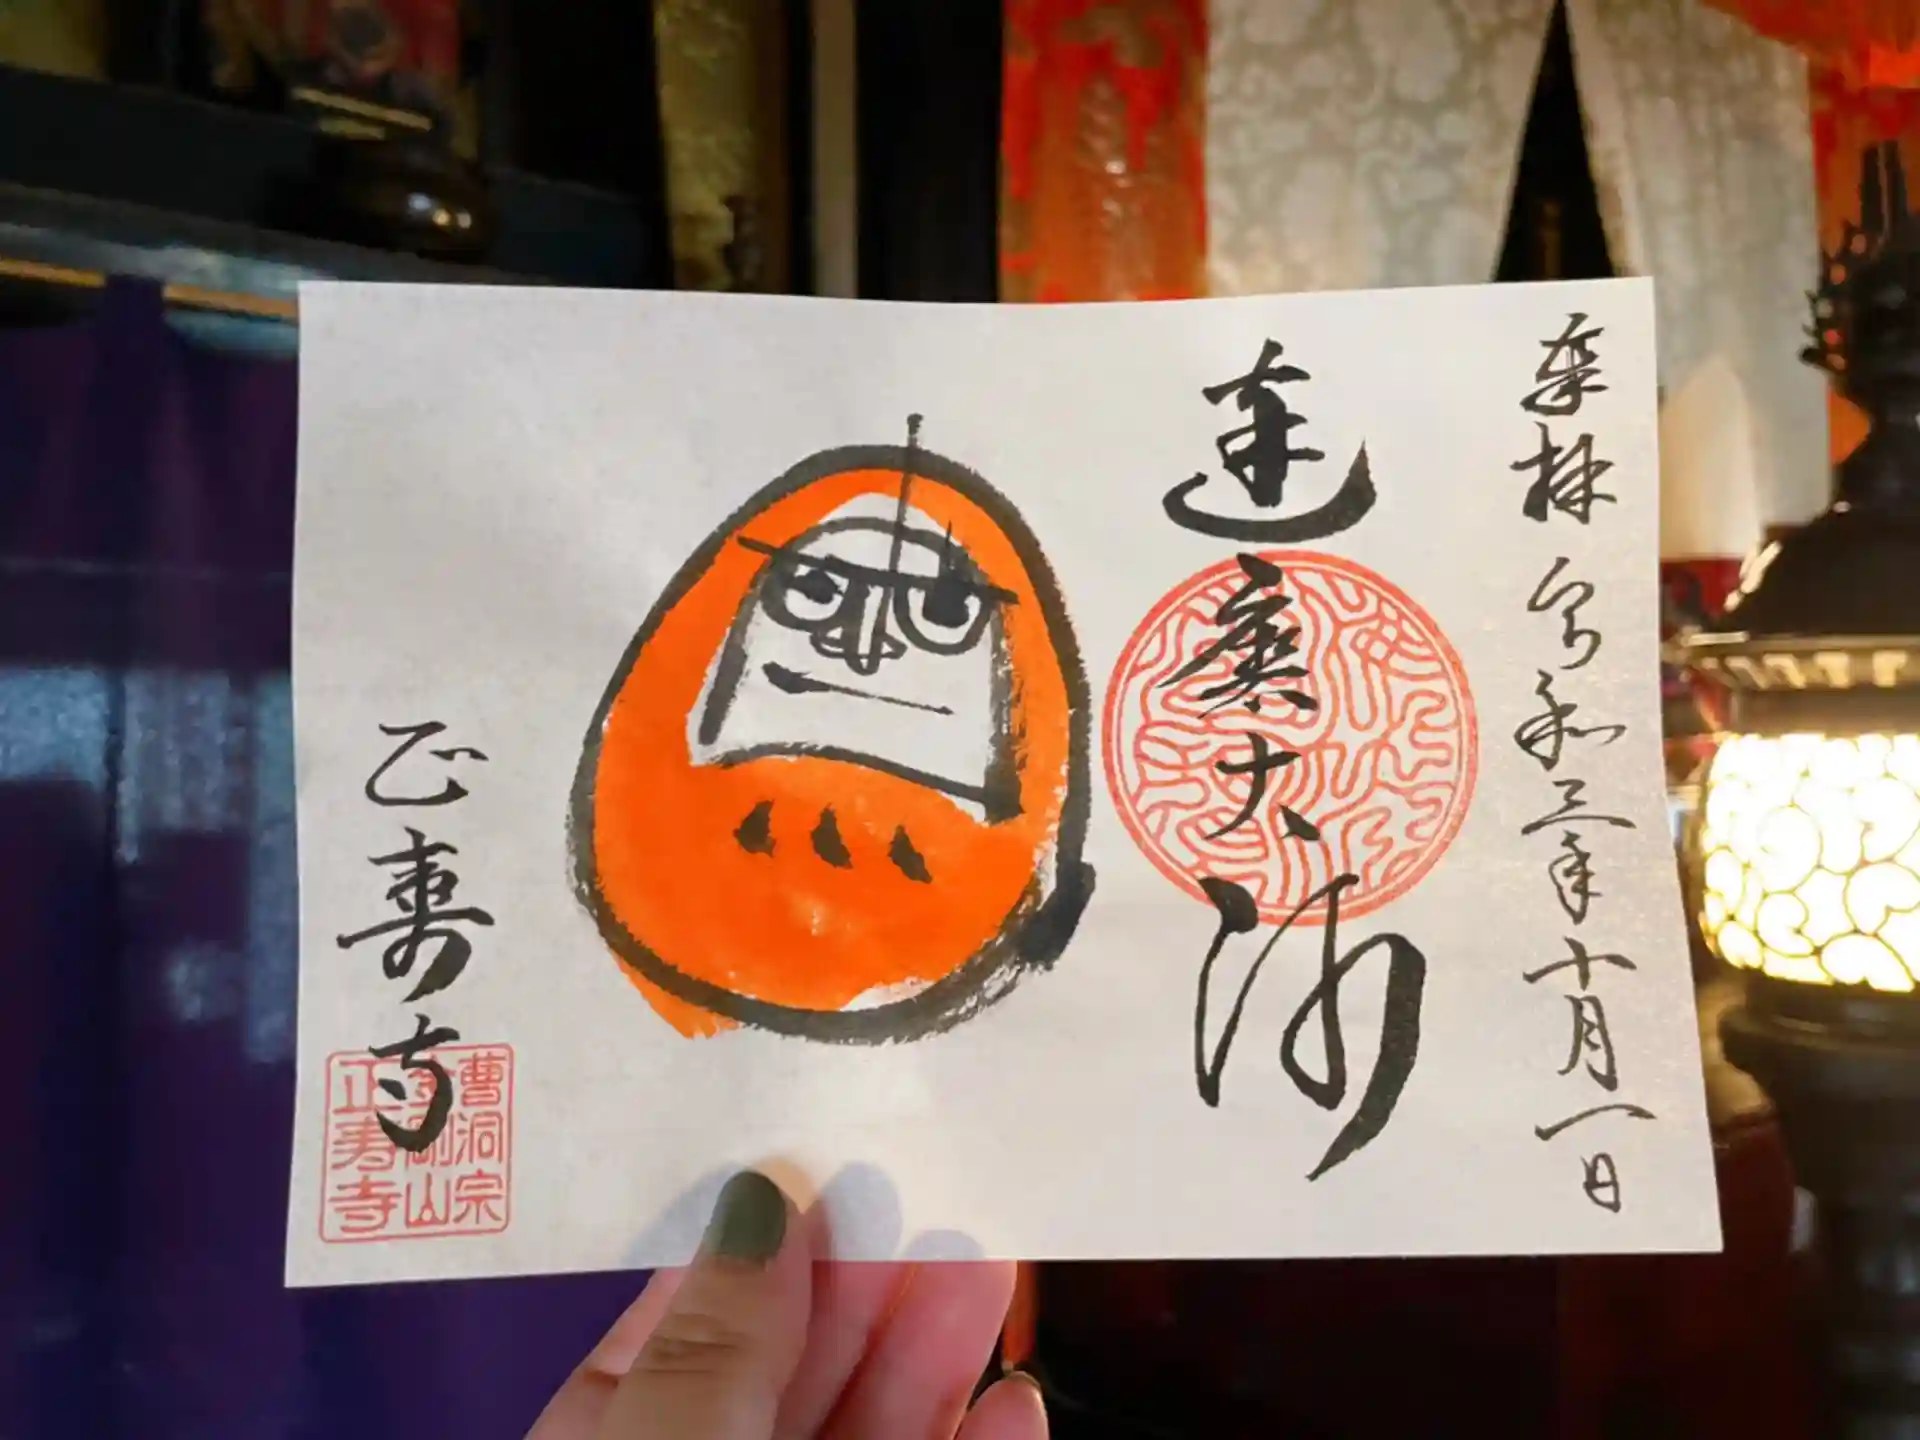 奉拝 令和三年十月一日
達磨大師
正寿寺
曹洞宗
金剛山
正寿寺